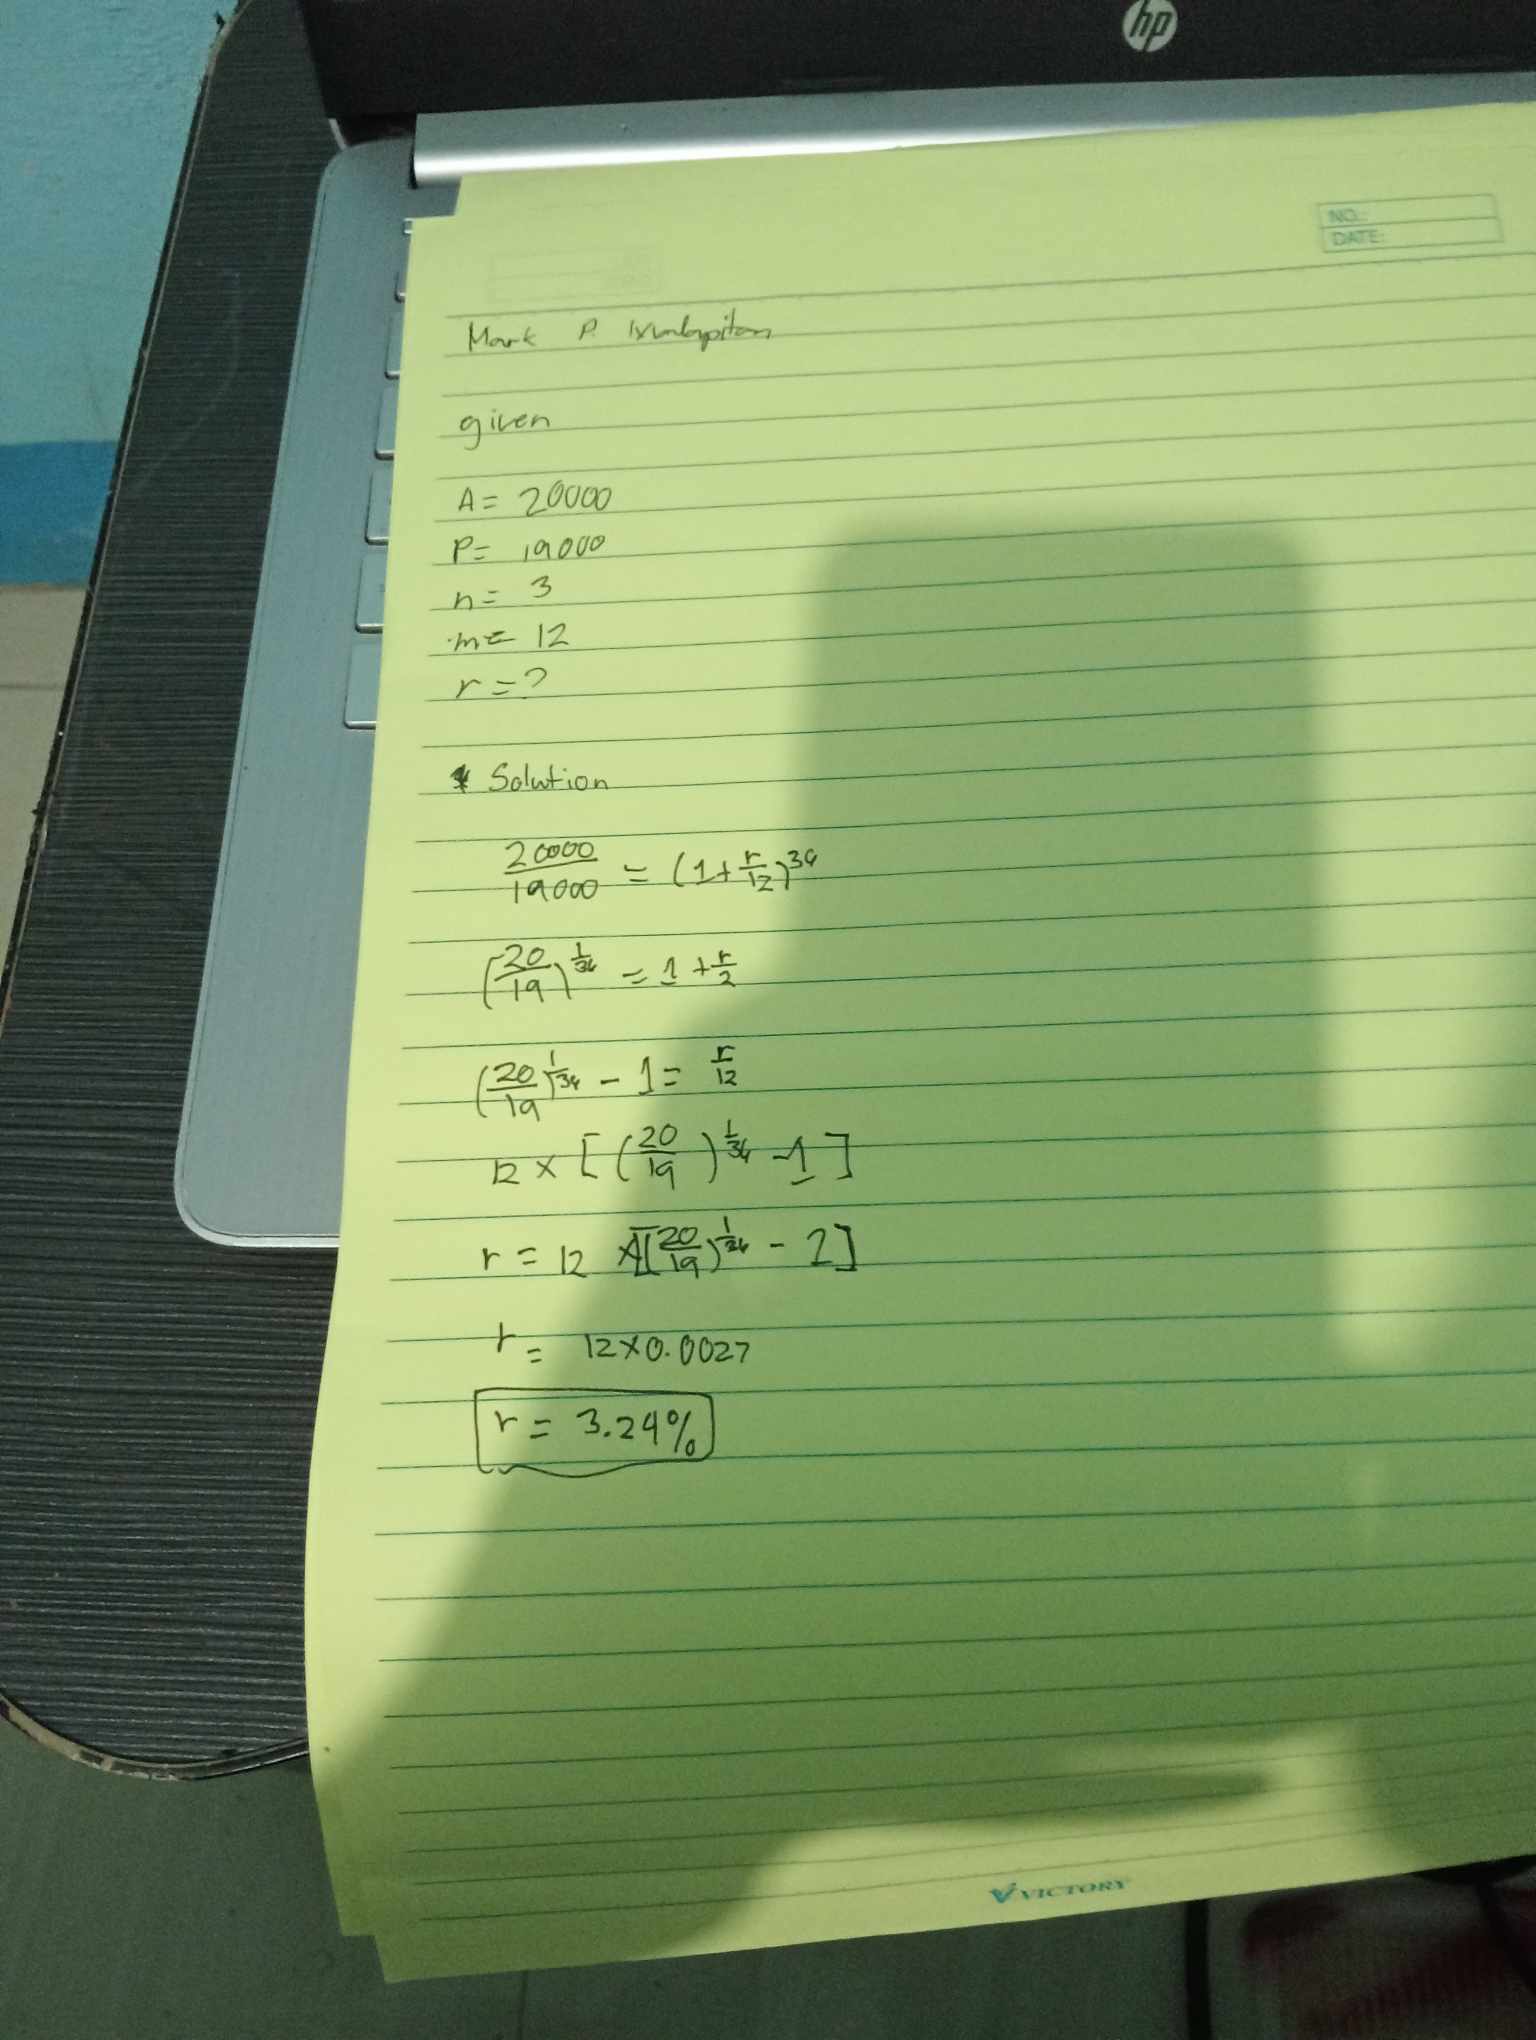 hp
NO.:
DATE:
Mark P.
given
A = 20000
P = 19000
n = 3
m = 12
r = ?
* Solution
20000/19000 = (1 + r/12)^36
(20/19)^1/36 = 1 + r/2
(20/19)^1/36 - 1 = r/12
12 × [(20/19)^1/36 - 1]
r = 12 × [(20/19)^1/36 - 1]
r = 12 × 0.0027
r = 3.24%
VICTORY